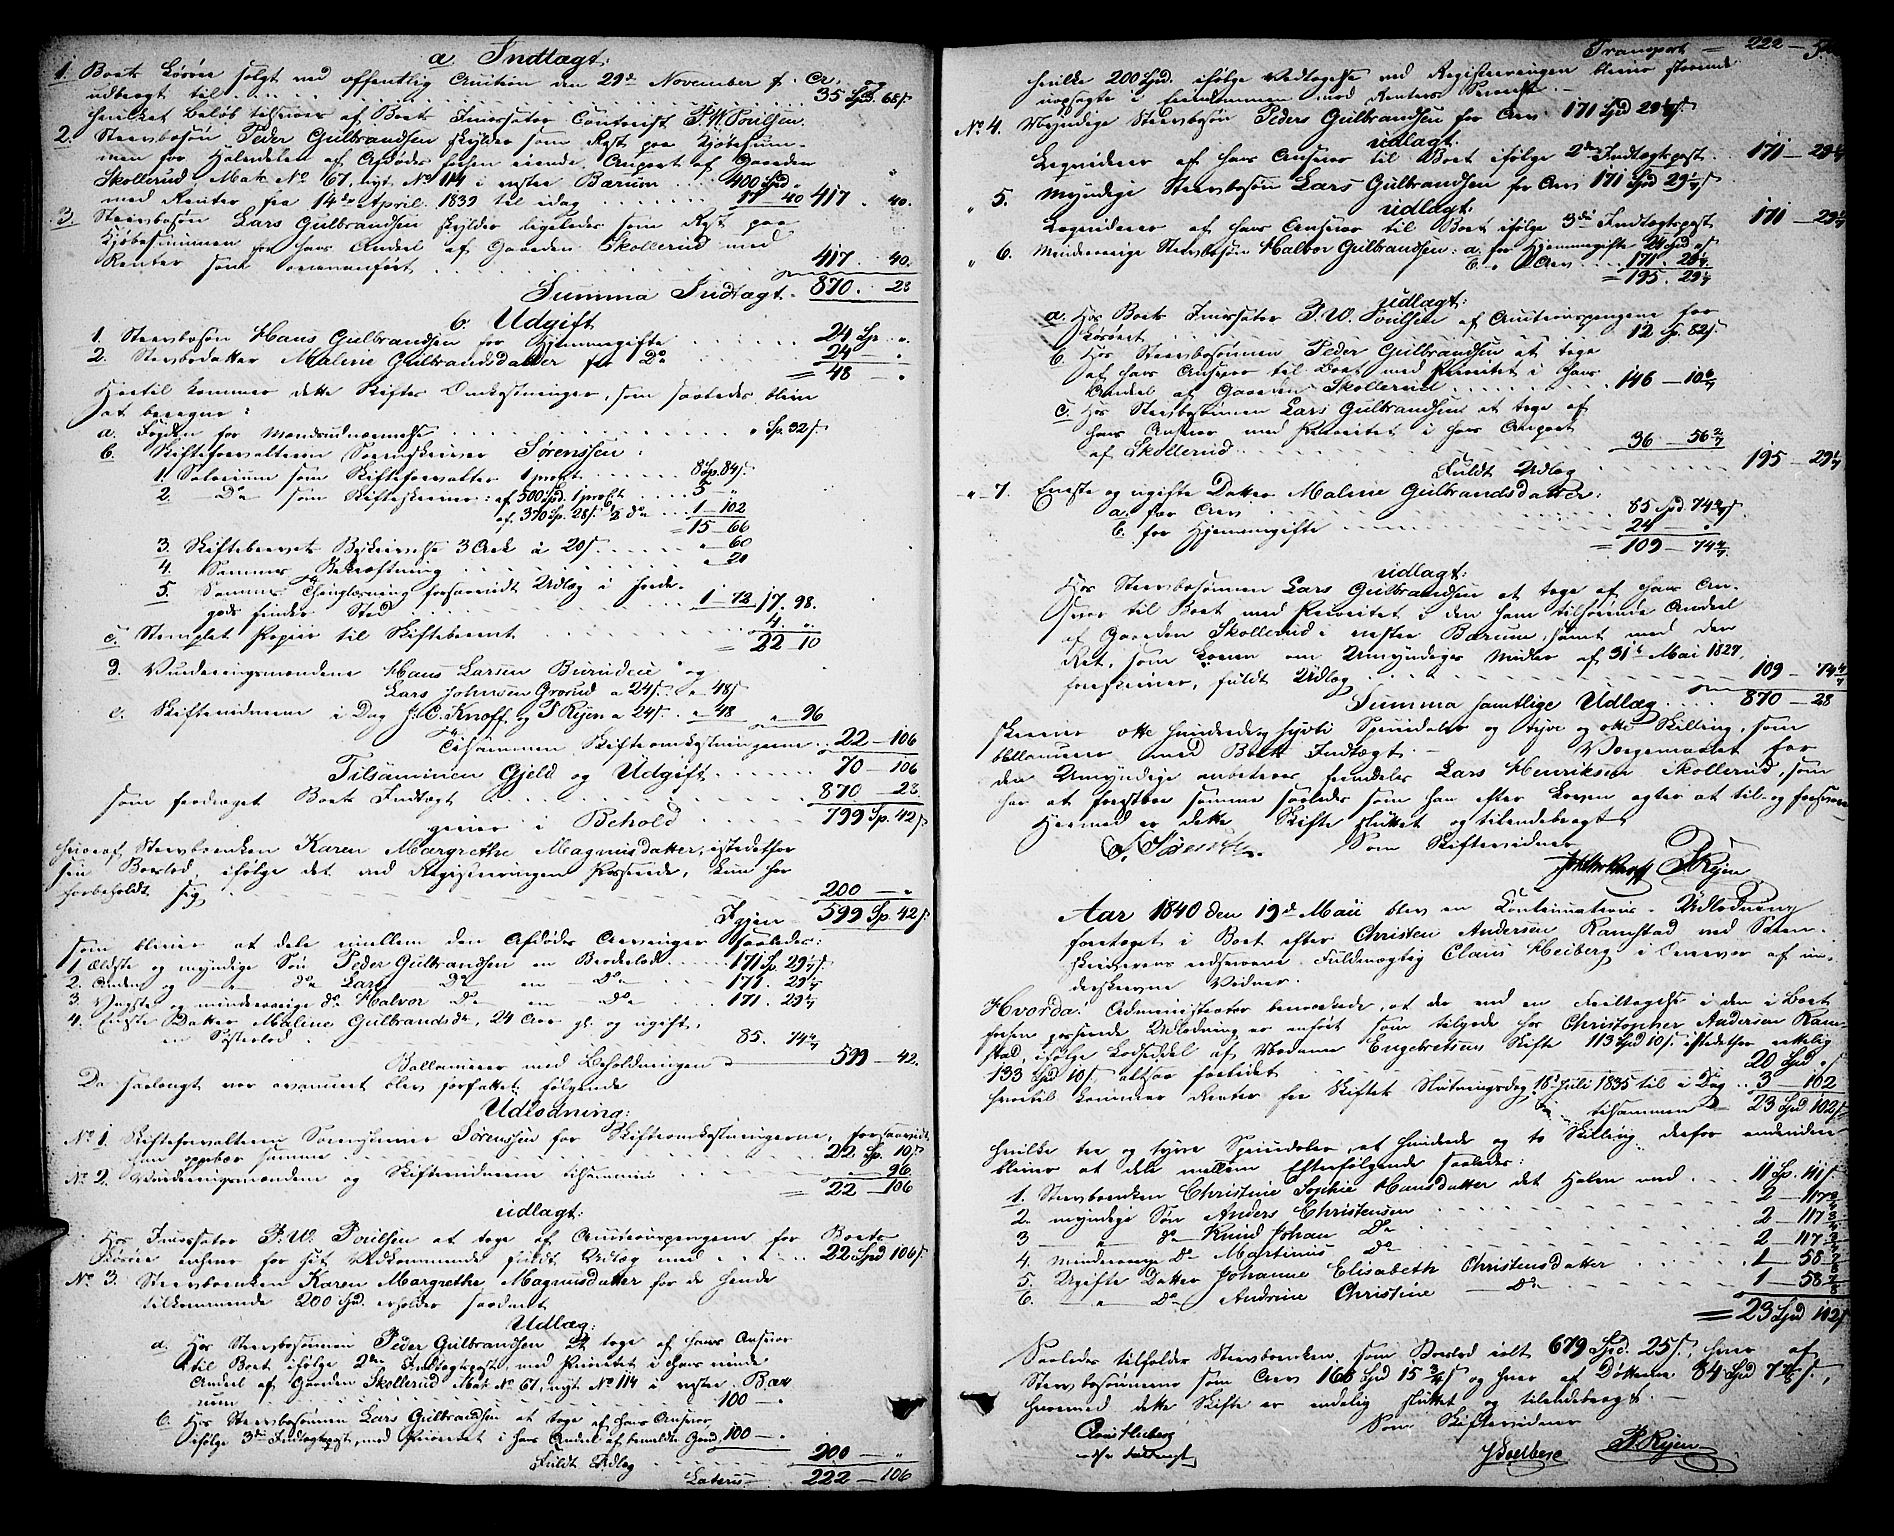 a Indtægt:
1. Boets Løsøre solgt ved offentlig Auction den 29de November f. A. og
udbragt til . . . 35 Spd. 68 s.
hvilket Beløb tilsvares af Boets Incassator Contorist P. W. Poulsen.
2. Stervbosøn Peder Gulbrandsen skylder som Rest paa Kjøbesum-
men for Halvdelen af Afdødes forhen eiende Anpart af Gaarden
Skollerud Mat. No 67, nyt No 114 i vestre Bærum . . . 400 Spd. "
med Renter fra 14de April 1839 til idag . . . 17 40 417. 40.
3. Stervbosøn Lars Gulbrandsen skylder ligeledes som Rest paa
Kjøbesummen for hans Andeel af Gaarden Skollerud med
Renter som ovenanført . . . 417. 40.
Summa Indtægt. 870. 28
b. Udgift
1. Stervbosøn Hans Gulbrandsen for Hjemmegifte . . . 24 Sp. "
2. Stervbodatter Maline Gulbrandsdatter for Do . . . 24 — "
= 48 — "
Hertil kommer dette Skiftes Omkostninger, som saaledes blive
at beregne:
a. Fogden for Mændsudnævnelse . . . " Sp. 32 s.
b. Skifteforvalteren Sorenskriver Sørenssen:
1. Salarium som Skifteforvalter 1 procent . . . 8 Sp. 84 s.
2. — Do som Skifteskriver: af 500 Spd. 1 procent . . . 5 — "
af 370 Sp. 28 s. ½ do . . . 1 — 102
= 15 — 66
3. Skiftebrevets Beskrivelse 3 Ark à 20 s. . . . " — 60
4. Sammes Bekræftning . . . " — 20
5. Sammes Thinglæsning forsaavidt Udlæg i Jorde-
gods finder Sted . . . 1 — 72 17. 98.
c. Stemplet Papir til Skiftebrevet . . . 4. "
= 22 — 10
d. Vurderingsmændene Hans Larsen Burudeie og
Lars Johnsen Grorud a 24 s. " — 48 s.
e. Skiftevidnerne i Dag J. C. Knoff og P. Ryen a 24 s. " — 48 " — 96
Tilsammen Skifteomkostningerne . 22 — 106
Tilsammen Gjeld og Udgift . . . 70 — 106
som fradraget Boets Indtægt . . . 870 — 28.
giver i Behold . . . 799 Sp. 42 s.
hvoraf Stervboenken Karen Margrethe Magnusdatter, istedetfor
sin Boeslod, ifølge det ved Registreringen Passerede, kun har
forbeholdt sig . . . 200 — "
Igjen 599 Sp. 42 s.
som bliver at dele mellem den Afdødes Arvinger saaledes:
1 Ældste og myndige Søn Peder Gulbrandsen en Broderlod . . . 171 Sp. 29 1/7 s.
2. Anden og — " — do Lars Do — en — Do . . . 171. 29 1/7
3. Yngste og mindreaarige do Halvor Do — en — Do . . . 171. 29 1/7
4. Eneste Datter Maline Gulbrandsdr, 24 Aar gl. og ugift,
en Søsterlod . . . 85. 74 4/7
Ballancerer med Beholdningen . . . 599 — 42.
Da saalangt var avanceret blev forfattet følgende
Udlodning:
No 1. Skifteforvalteren Sorenskriver Sørenssen for Skifteomkostningerne, forsaavidt
han oppebær samme . . . 22 Sp. 10 s.
No 2. Vurderingsmændene og Skiftevidnerne tilsammen . . . " — 96
= 22 — 106
udlagt:
Hos Incassator P. W. Poulsen at tage af Auctionspengene for Boets
Løsøre enhver for sit Vedkommende fuldt Udlæg med . . . 22 Spd 106 s.
No 3. Stervboenken Karen Margrethe Magnusdatter for de hende
tilkommende 200 Spd. erholder saadant
Udlæg:
a. Hos Stervbosønnen Peder Gulbrandsen at tage af hans Ansvar
til Boet ifølge 2den Indtægtspost, med Prioritet i hans eiende
Andeel af Gaarden Skollerud Mat No 67, nyt No 114 i vestre Bæ-
rum . . . 100 — "
b. Hos Stervbosønnen Lars Gulbrandsen at tage af hans Ansvar
ifølge 3die Indtægtspost, med Prioritet i hans Andeel af bemeldte Gaard 100 — "
Fuldt Udlæg 200 — "
Laterus 222 — 106
Transport — 222 —
hvilke 200 Spd. ifølge Vedtagelse ved Registreringen bliver staaende
uopsagte i Eiendommen mod Renters Svarelse. —
No 4. Myndige Stervbosøn Peder Gulbrandsen for Arv 171 Spd 29 1/7 s.
udlagt:
Liqviderer af hans Ansvar til Boet ifølge 2den Indtægtspost . . 171 — 29 1/7
" 5. Myndige Stervbosøn Lars Gulbrandsen for Arv 171 Spd 29 1/7 s.
udlagt:
Liqviderer af hans Ansvar til Boet ifølge 3die Indtægtspost 171 — 29 1/7
" 6. Mindreaarige Stervbosøn Halvor Gulbrandsen: a. for Hjemmegifte 24 Spd " s.
b. " Arv . . . 171. 29 1/7
= 195. 29 1/7
udlagt:
a. Hos Boets Incassator P. W. Poulsen af Auctionspengene for
Løsøret . . . 12 Sp. 82 s.
b. Hos Stervbosønnen Peder Gulbrandsen at tage
af hans Ansvar til Boet med Prioritet i hans
Andeel af Gaarden Skollerud . . . 146 — 10 6/7
c. Hos Stervbosønnen Lars Gulbrandsen at tage af
hans Ansvar med Prioritet i hans Anpart
af Skollerud . . . 36 — 56 2/7
Fuldt Udlæg . . . 195 — 29 1/7
" 7. Eneste og ugifte Datter Maline Gulbrandsdatter:
a. for Arv . . . 85 Spd. 74 4/7 s.
b. for Hjemmegifte . . . 24 — "
= 109 — 74 4/7
udlagt:
Hos Stervbosønnen Lars Gulbrandsen at tage af hans An-
svar til Boet med Prioritet i den ham tilhørende Andeel
af Gaarden Skollerud i vestre Bærum, samt med den
Ret, som Loven om Umyndiges Midler af 31te Mai 1827,
foreskriver, fuldt Udlæg . . . 109 — 74 4/7
Summa samtlige Udlæg . . . 870 — 28
skriver otte hundrede og syvti Speciedaler og tyve og otte Skilling, som
ballancerer med Boets Indtægt. — Værgemaalet for
den Umyndige anbetroes fremdeles Lars Henriksen Skollerud, som
har at forestaae samme saaledes som han efter Loven agter at til- og forsvare
Hermed er dette Skifte sluttet og tilendebragt.
Som Skiftevidner
P. Ryen
Aar 1840 den 19de Maii blev en Continuations-Udlodning
foretaget i Boet efter Christen Andersen Ramstad ved Soren-
skriverens edsvorne Fuldmægtig Claus Heiberg i Overvær af un-
derskrevne Vidner.
Hvorda! Administrator bemærkede, at der ved en Feiltagelse i den i Boet
forhen passerede Udlodning er anført som tilgode hos Christopher Andersen Ram-
stad, ifølge Lodseddel af Madame Engebretsens Skifte 113 Spd 10 s. istedetfor rettelig
133 Spd 10 s., altsaa forlidet . . . 20 Spd. " s.
hvortil kommer Renter fra Skiftets Slutningsdag 18de Juli 1835 til i Dag . . 3 — 102
tilsammen 23 Spd 102 s.
hvilke tre og tyve Speciedaler, et hundrede og to Skilling, derfor endvidere
bliver at dele mellem Efterfølgende saaledes:
1. Stervboenken Christine Sophie Hansdatter det Halve med . . . 11 Sp. 111 s.
2. myndige Søn Anders Christensen . . . 2 — 117
3 — " — do — Knud Johan Do . . . 2 — 117
4. mindreaarige Do Martinus Do . . . 2 — 117
5. Ugifte Datter Johanne Elisabeth Christensdatter . . . 1 — 58
6. — " — Do Andrine Christine — Do . . . 1 — 58
= 23 Spd 102 s.
Saaledes tilfaldes Stervboenken, som Boeslod ialt 679 Spd. 25 s., hver af
Stervbosønnerne som Arv 168 Spd 15 s. og hver af Døttrene 84 Spd 7 s.,
hvormed dette Skifte er endelig sluttet og tilendebragt. —
Som Skiftevidner
Claus Heiberg
P. Ryen